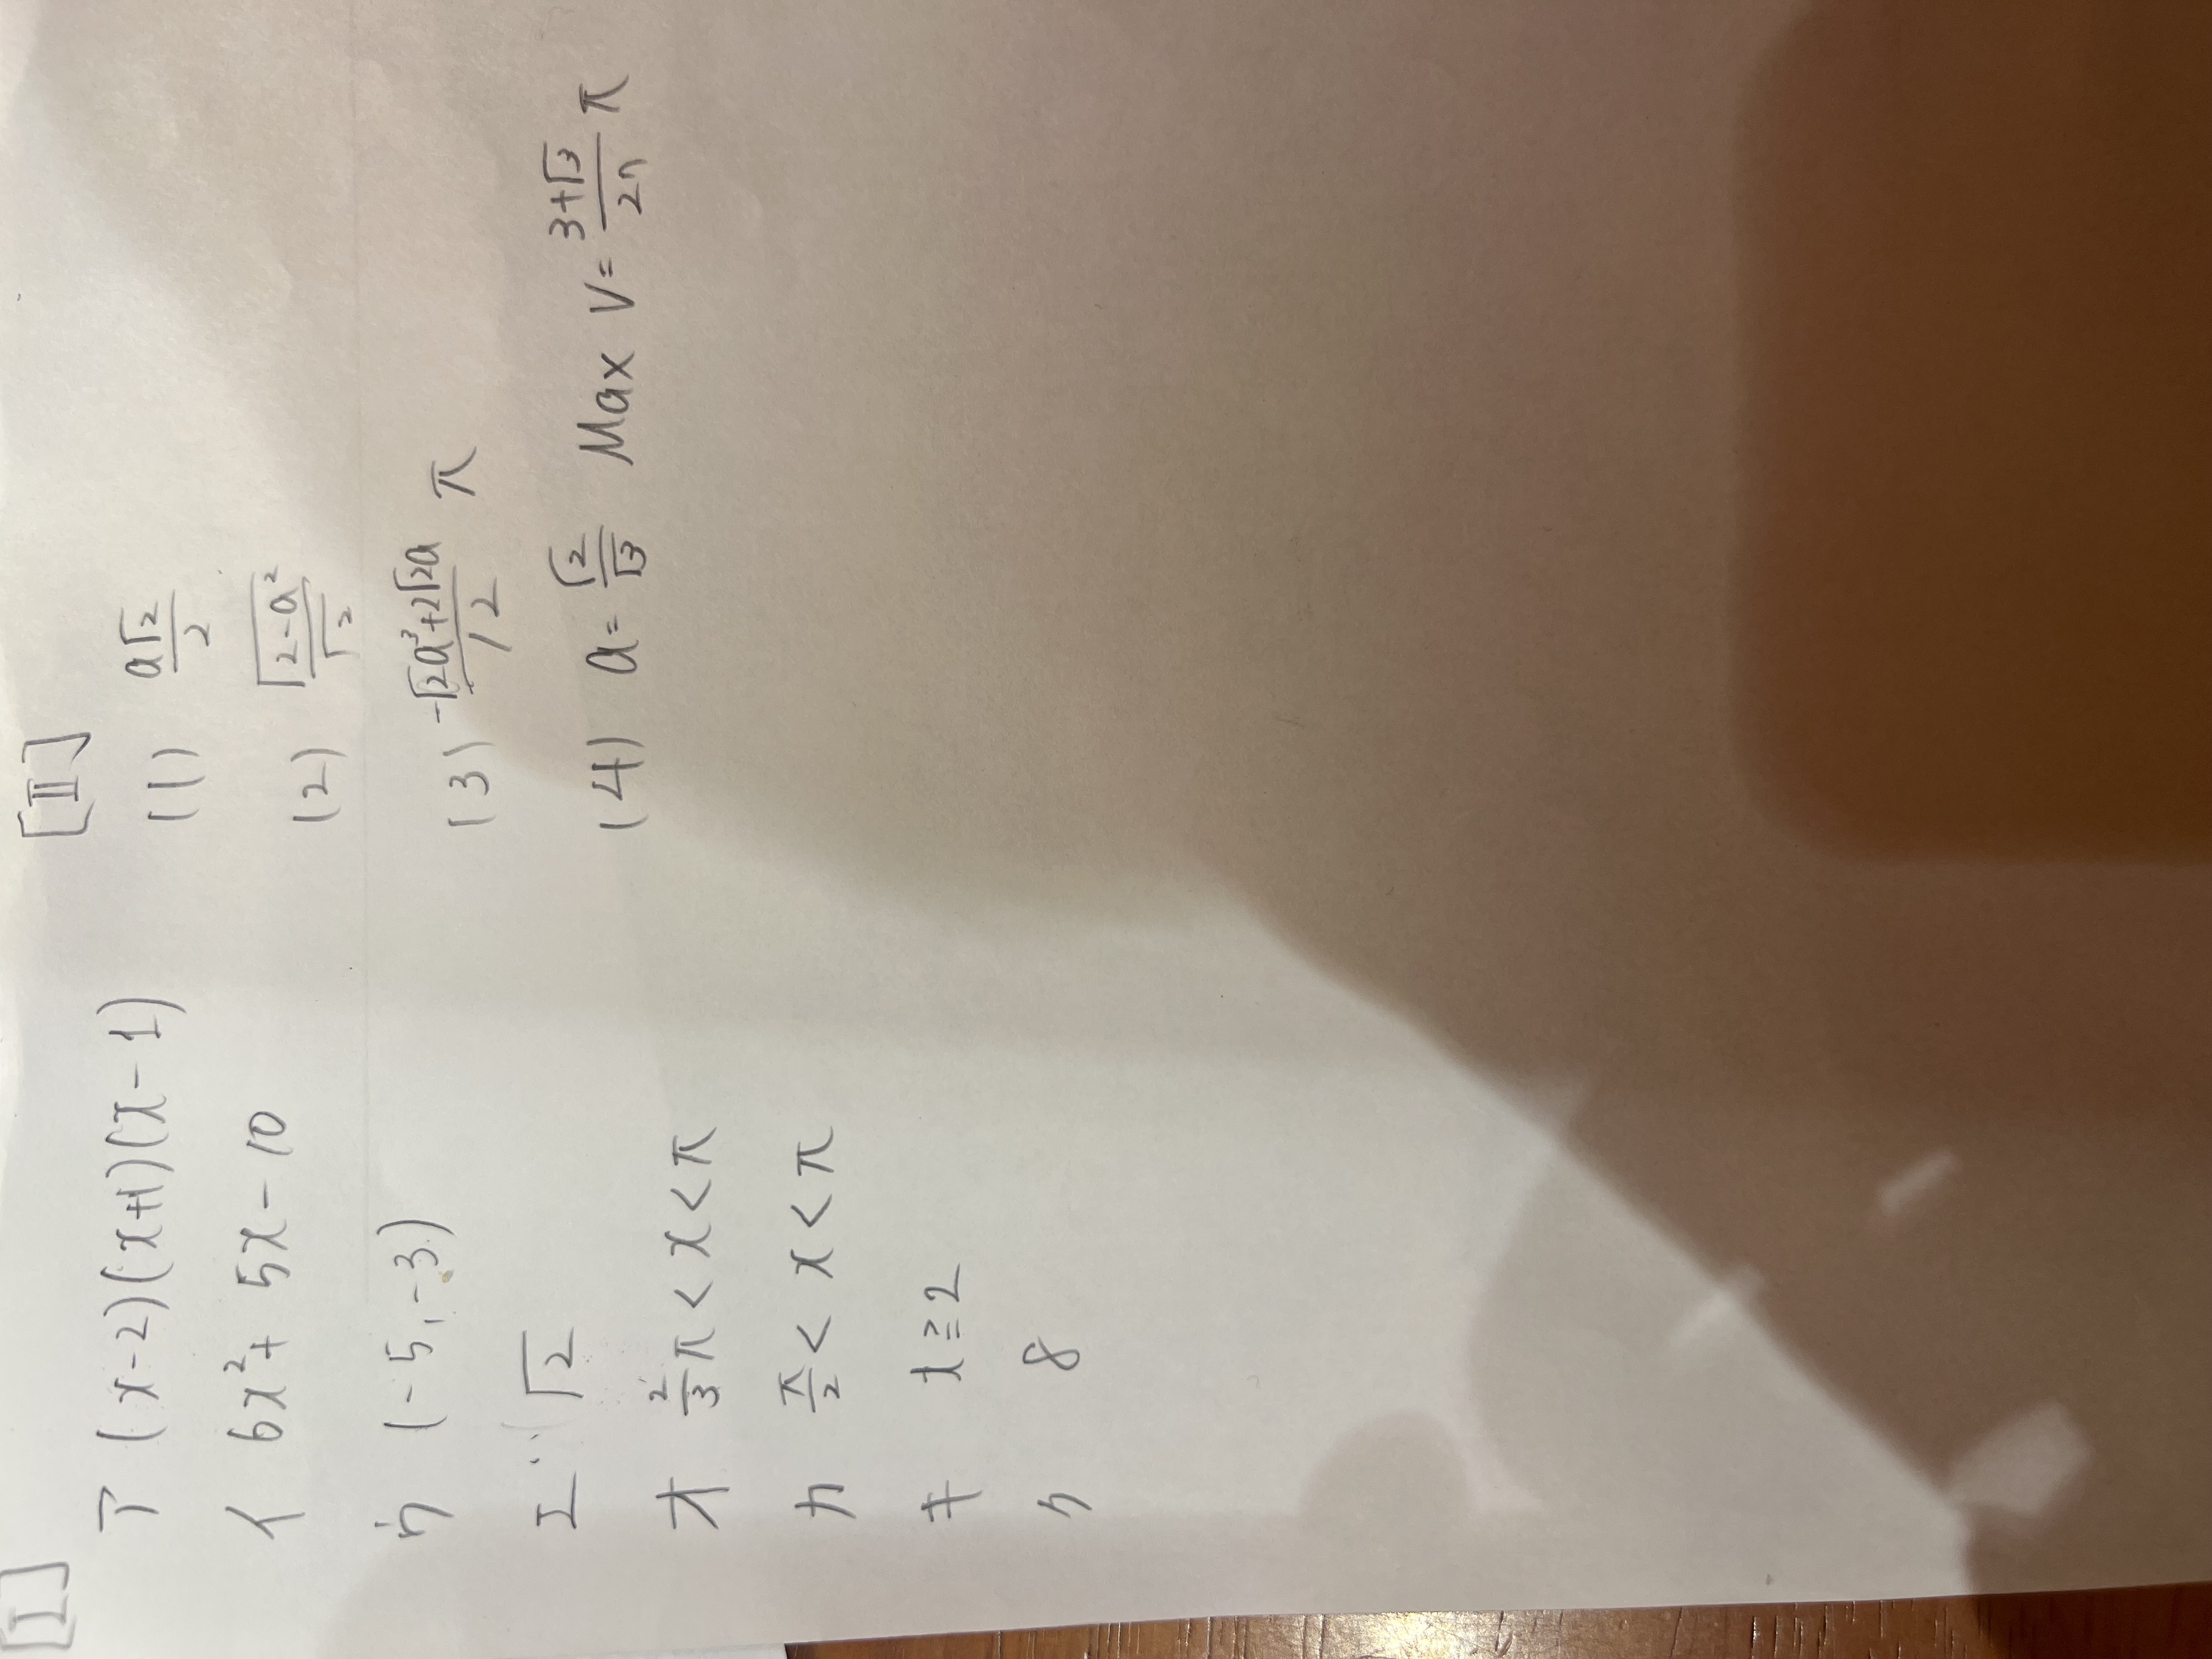 [I]
ア (x-2)(x+1)(x-1)
イ 6x²+5x-10
ウ (-5,-3)
エ √2
オ 2/3 π<x<π
カ π/2<x<π
キ t≧2
ク 8
[II]
(1) a√2/2
(2) √(2-a²)/√2
(3) (-√2a³+2√2a)/12 π
(4) a=√2/√3 Max V= π